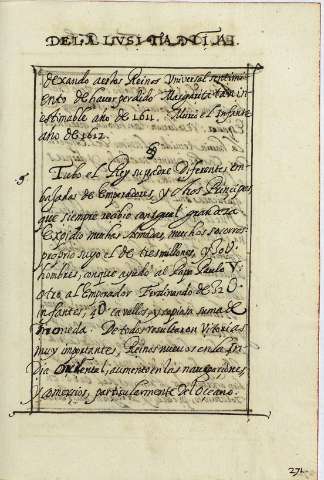 DE LA LUSITANIA.
dexando a estos Reinos Universal sentimi
ento de haver perdido Margarita tan in
estimable año de 1611. Murio el Infante
año de 1612.
§
Tubo el Rey su padre Diferentes em
bajadas de Emperadores, y otros Principes
que siempre recibio con igual grandeza
Expidio muchas Armadas, muchos socorros
proprio suyo el de tres millones, y 30U
hombres, con que ayudó al Papa Paulo V:
otro al Emperador Ferdinando de 12U
infantes, 4U cavallos, y copiosa suma de
moneda. De todos resultaron Vitorias
muy importantes, Reinos nuevos en la In
dia Oriental, aumento en las navegaciones
y comercios, particularmente del Oceano.
271